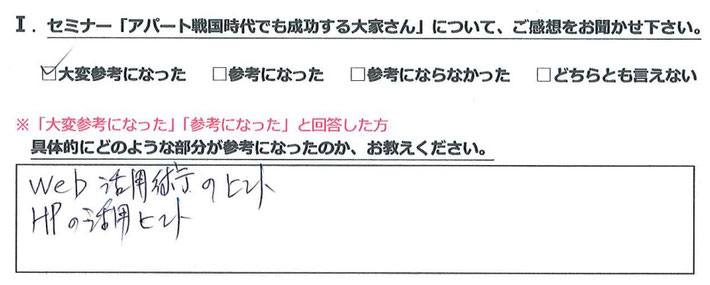 I．セミナー「アパート戦国時代でも成功する大家さん」について、ご感想をお聞かせ下さい。
☑大変参考になった □参考になった □参考にならなかった □どちらとも言えない
※「大変参考になった」「参考になった」と回答した方
具体的にどのような部分が参考になったのか、お教えください。
Web 活用術のヒント
HPの活用ヒント